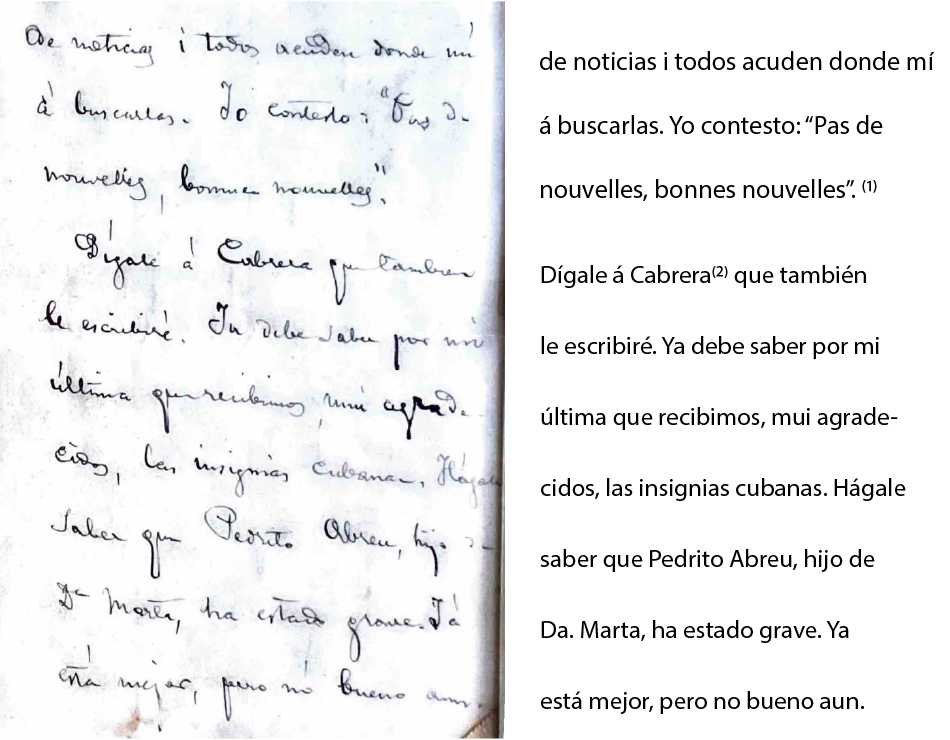 de noticias i todos acuden donde mí
á buscarlas. Yo contesto: "Pas de
nouvelles, bonnes nouvelles".
Dígale á Cabrera que tambien
le escribiré. Ya debe saber por mi
última que recibimos, mui agrade-
cidos, las insignias cubanas. Hágale
saber que Pedrito Abreu, hijo de
Da Marta, ha estado grave. Yá
está mejor, pero nó bueno aun.
de noticias i todos acuden donde mí
á buscarlas. Yo contesto: “Pas de
nouvelles, bonnes nouvelles”. (1)
Dígale á Cabrera(2) que también
le escribiré. Ya debe saber por mi
última que recibimos, mui agrade-
cidos, las insignias cubanas. Hágale
saber que Pedrito Abreu, hijo de
Da. Marta, ha estado grave. Ya
está mejor, pero no bueno aun.